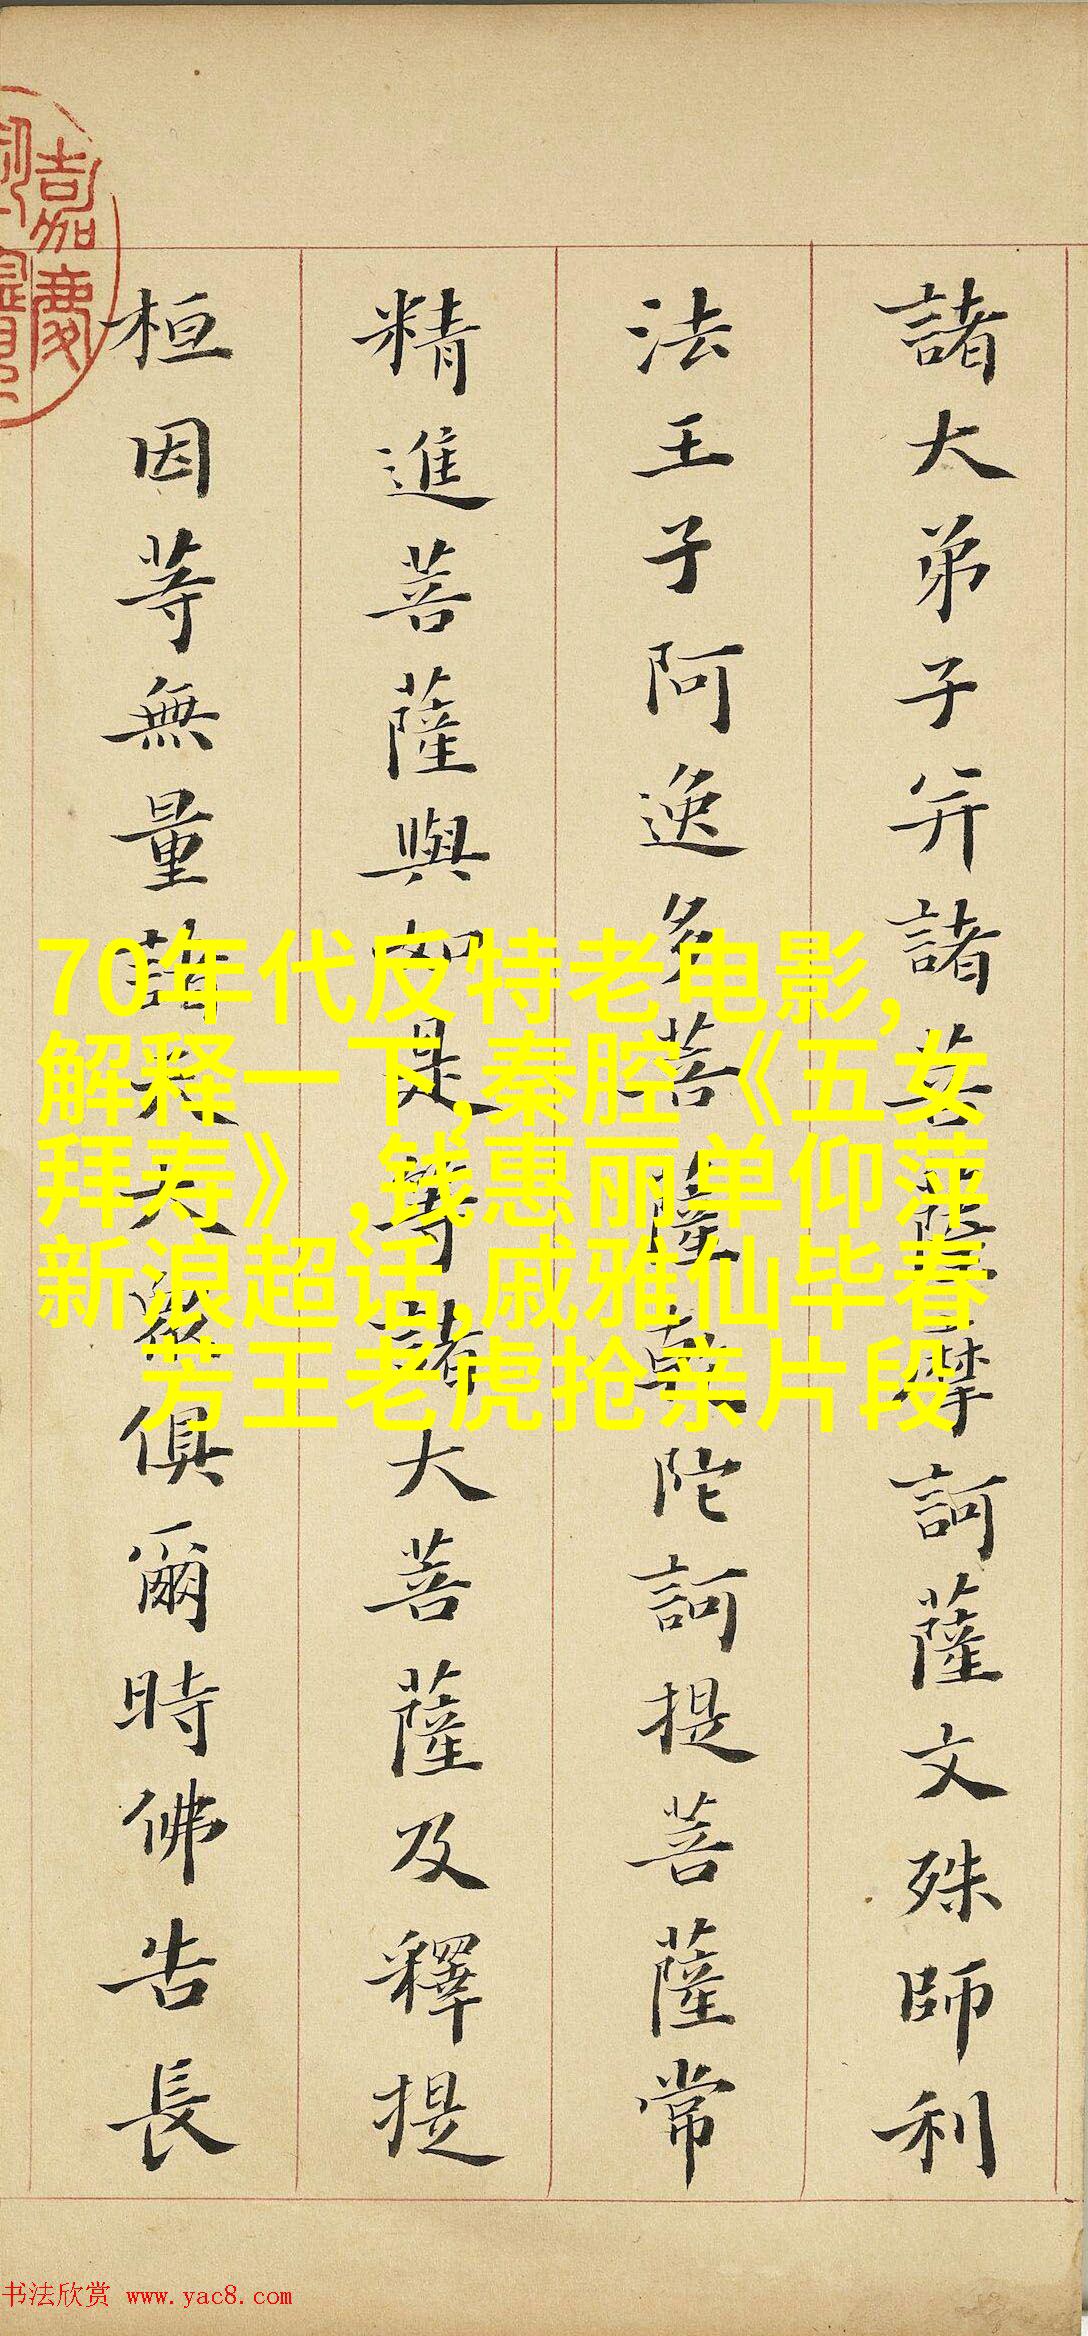 諸大弟子并諸菩薩摩訶薩文殊師利
法王子阿逸多菩薩乾陀訶提菩薩常
精進菩薩與如是等諸大菩薩及釋提
桓因等無量諸天大衆俱爾時佛告長
嘉慶
70年代皮特老电影,
解释一下,秦腔《五女
拜寿》,钱惠丽单仰萍
新浪超话,戚雅仙毕春
芳王老虎抢亲片段
书法欣赏 www.yac8.com